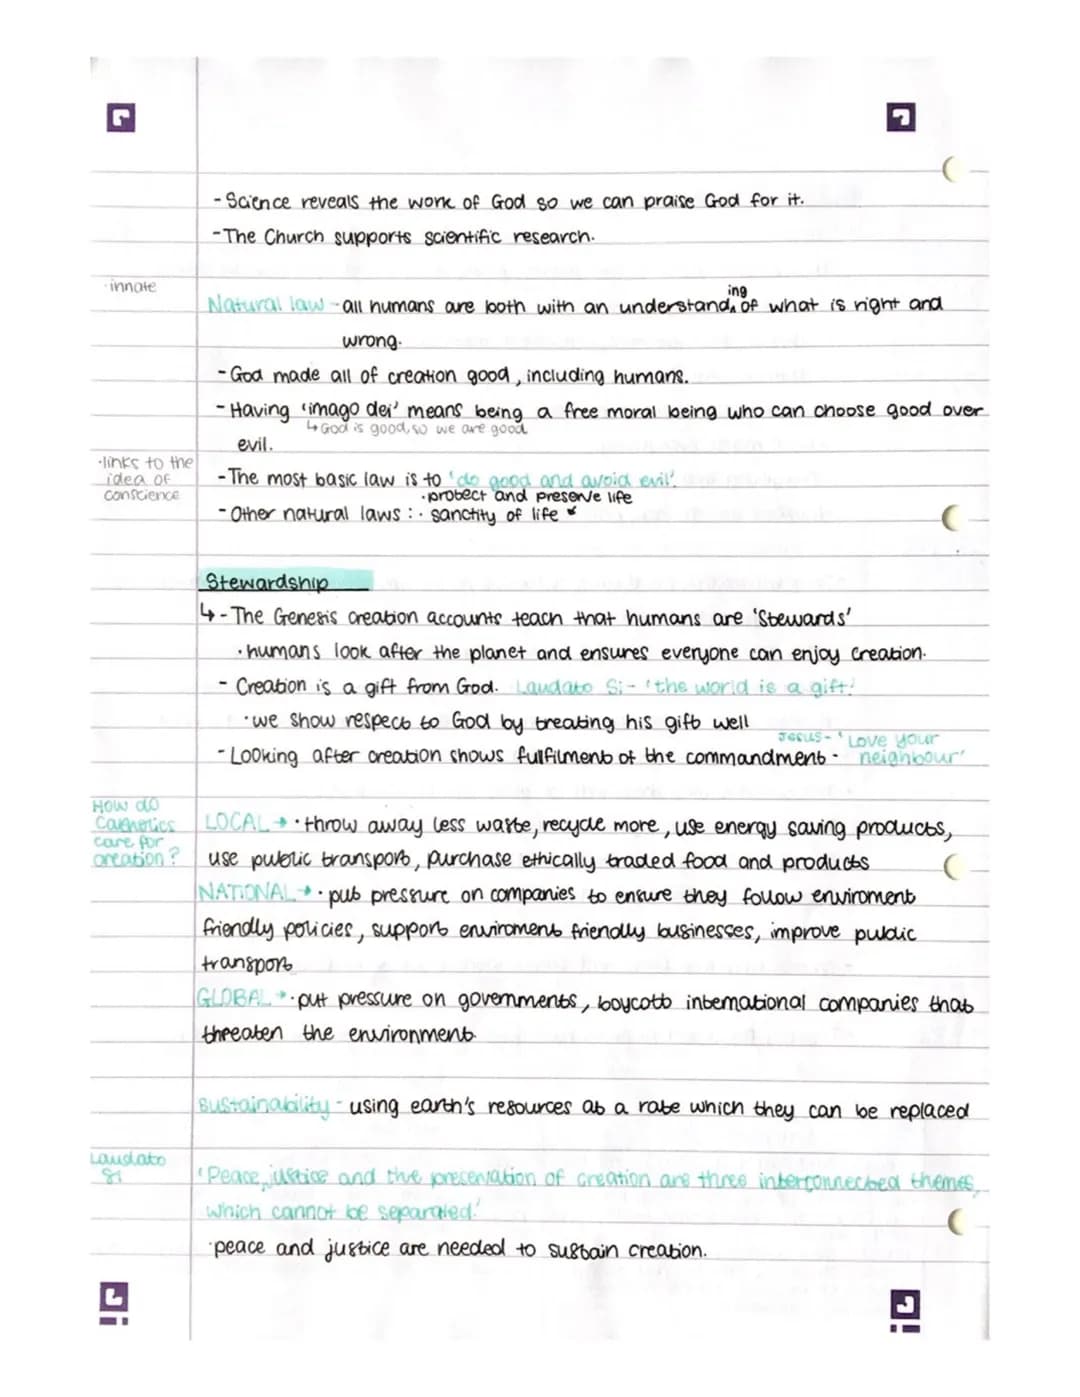 - Science reveals the work of God so we can praise God for it.
- The Church supports scientific research.
· innate
ing
Natural law - all humans are both with an understand of what is right and
wrong.
- God made all of creation good, including humans.
- Having 'imago dei' means being a free moral being who can choose good over
↳ God is good, so we are good
evil.
· links to the
idea of
conscience
- The most basic law is to 'do good and avoid evil'.
· protect and preserve life
- Other natural laws : · sanctity of life
Stewardship
↳ - The Genesis creation accounts teach that humans are 'Stewards'
· humans look after the planet and ensures everyone can enjoy creation.
- Creation is a gift from God. Laudato Si - 'the world is a gift.'
· we show respect to God by treating his gift well
Jesus - 'Love your
- Looking after creation shows fulfilment of the commandment - neighbour'
How do
Catholics
care for
creation?
LOCAL → · throw away less waste, recycle more, use energy saving products,
use public transport, purchase ethically traded food and products
NATIONAL → · put pressure on companies to ensure they follow enviroment
friendly policies, support enviroment friendly businesses, improve public
transport
GLOBAL → · put pressure on governments, boycott international companies that
threaten the environment.
Sustainability - using earth's resources at a rate which they can be replaced
Laudato
Si
'Peace, justice and the preservation of creation are three interconnected themes,
which cannot be separated.'
· peace and justice are needed to sustain creation.